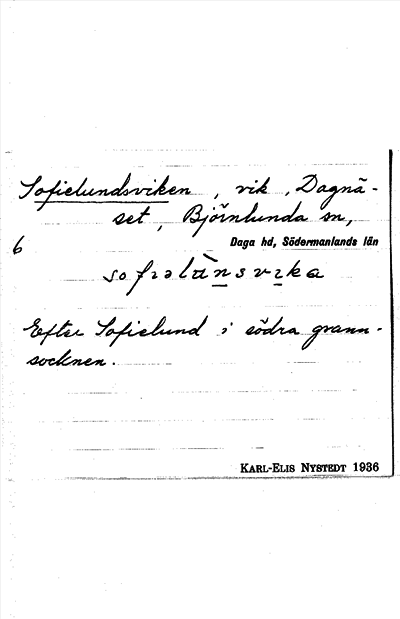 Sofielundsviken, vik, Dagnä-
set, Björnlunda sn,
6
Daga hd, Södermanlands län
Efter Sofielund i södra grann-
socknen.
KARL-ELIS NYSTEDT 1936